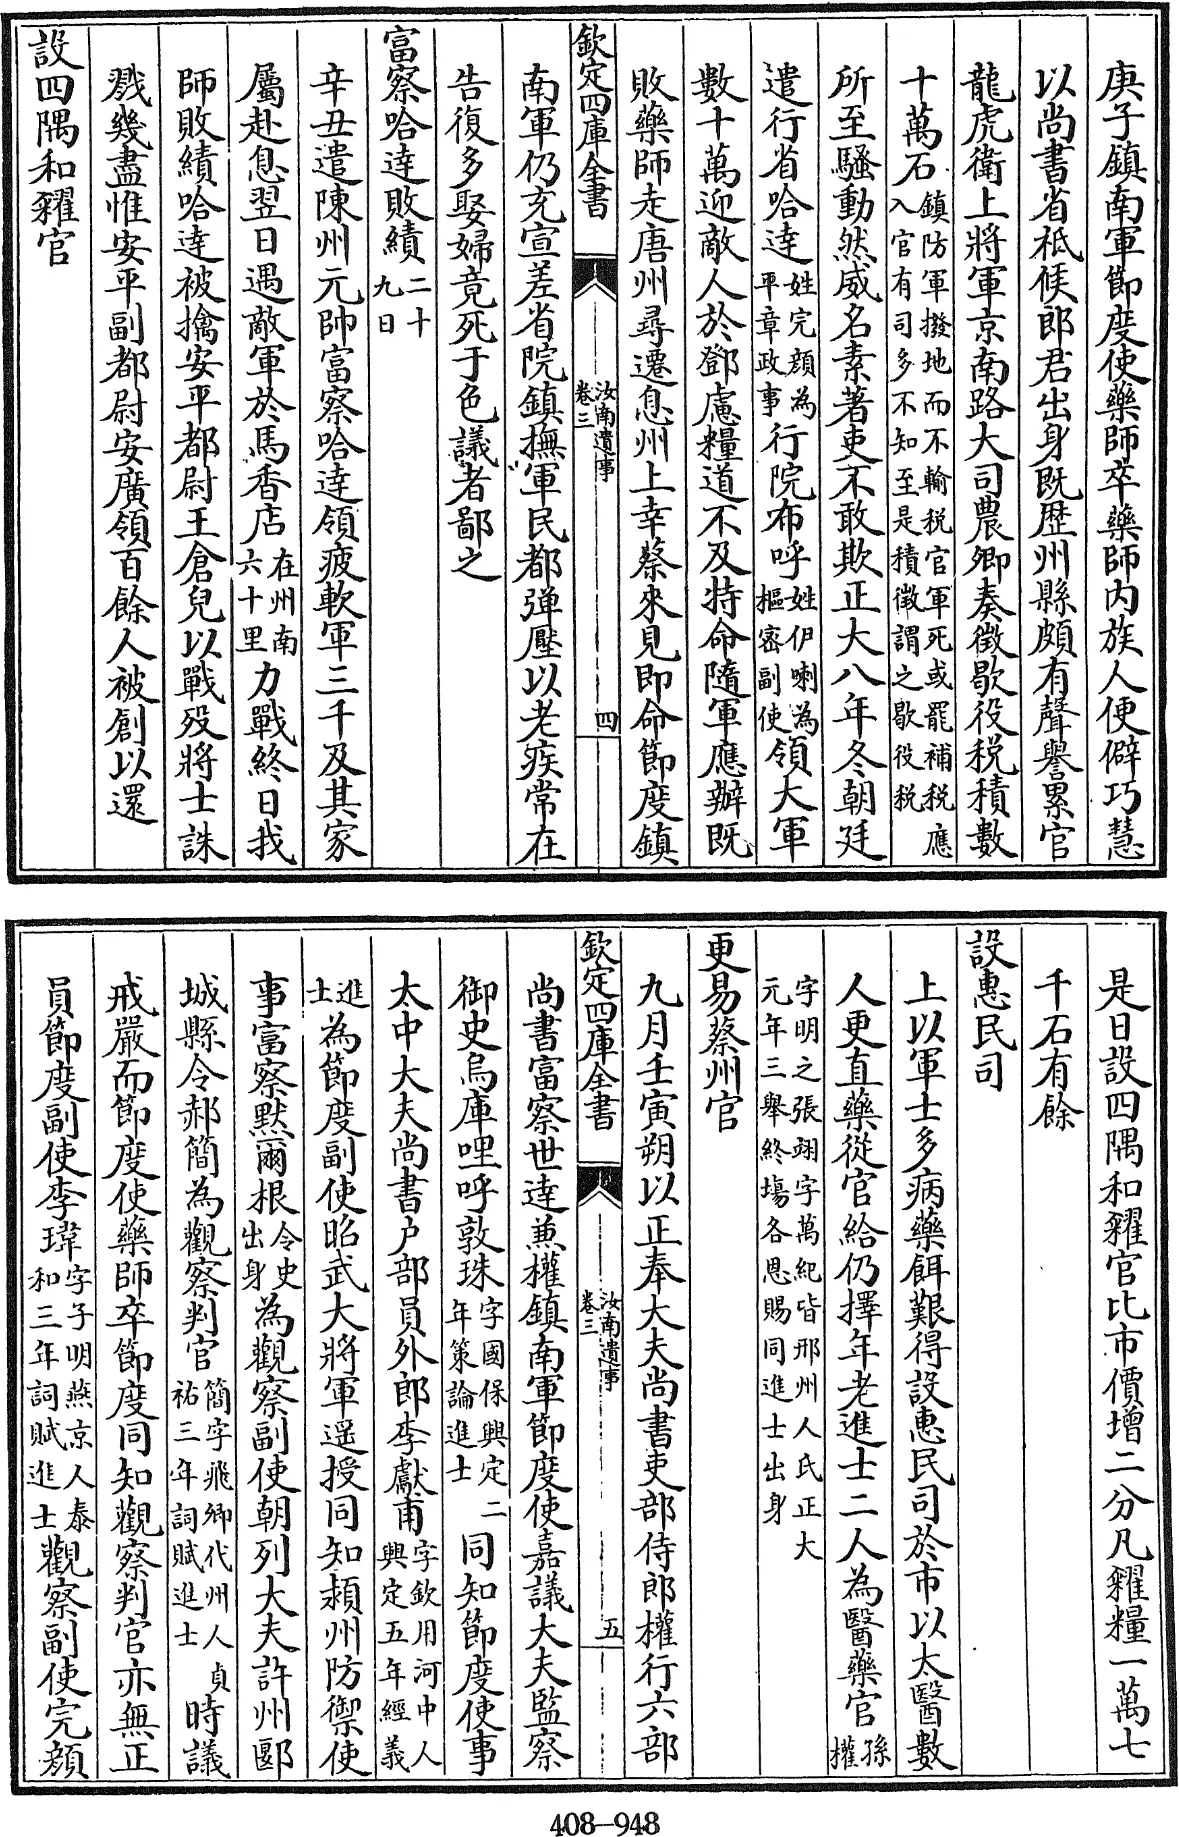 庚子鎮南軍節度使藥師卒藥師内族人便僻巧慧
以尚書省祗候郎君出身既歴州縣頗有聲譽累官
龍虎衛上將軍京南路大司農卿奏徴歇役税積數
十萬石鎮防軍撥地而不輸税官軍死或罷補税應入官有司多不知至是積徴謂之歇役税
所至騷動然威名素著吏不敢欺正大八年冬朝廷
遣行省哈達姓完顔為平章政事行院布呼姓伊喇為樞密副使領大軍
數十萬迎敵人於鄧慮糧道不及特命隨軍應辦既
敗藥師走唐州尋遷息州上幸蔡來見即命節度鎮
欽定四庫全書
汝南遺事
卷三
四
南軍仍充宣差省院鎮撫軍民都彈壓以老疾常在
告復多娶婦竟死于色議者鄙之
富察哈達敗績二十九日
辛丑遣陳州元帥富察哈達領疲軟軍三千及其家
屬赴息翌日遇敵軍於馬香店在州南六十里力戰終日我
師敗績哈達被擒安平都尉王倉兒以戰歿將士誅
戮幾盡惟安平副都尉安廣領百餘人被創以還
設四隅和糴官
是日設四隅和糴官比市價增二分凡糴糧一萬七
千石有餘
設惠民司
上以軍士多病藥餌艱得設惠民司於市以太醫數
人更直藥從官給仍擇年老進士二人為醫藥官孫權
字明之張翊字萬紀皆邢州人氏正大元年三舉終塲各恩賜同進士出身
更易蔡州官
九月壬寅朔以正奉大夫尚書吏部侍郎權行六部
欽定四庫全書
汝南遺事
卷三
五
尚書富察世達兼權鎮南軍節度使嘉議大夫監察
御史烏庫哩呼敦珠字國保興定二年策論進士同知節度使事
太中大夫尚書户部員外郎李獻甫字欽用河中人興定五年經義
進士為節度副使昭武大將軍遥授同知潁州防禦使
事富察黙爾根令史出身為觀察副使朝列大夫許州郾
城縣令郝簡為觀察判官簡字飛卿代州人貞祐三年詞賦進士時議
戒嚴而節度使藥師卒節度同知觀察判官亦無正
員節度副使李瑋字子明燕京人泰和三年詞賦進士觀察副使完顔
408-948